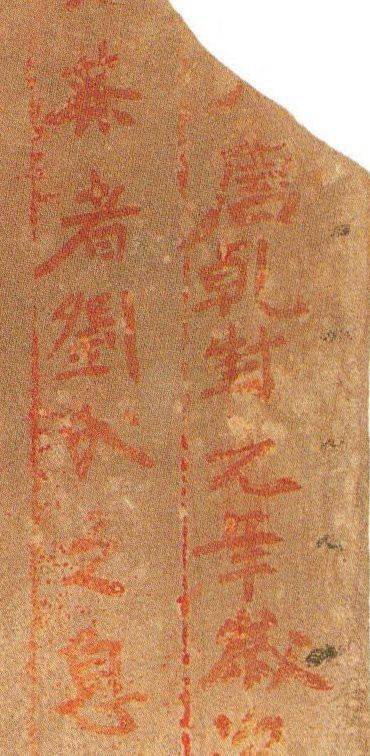 唐乾封元年歲
英者劉之息